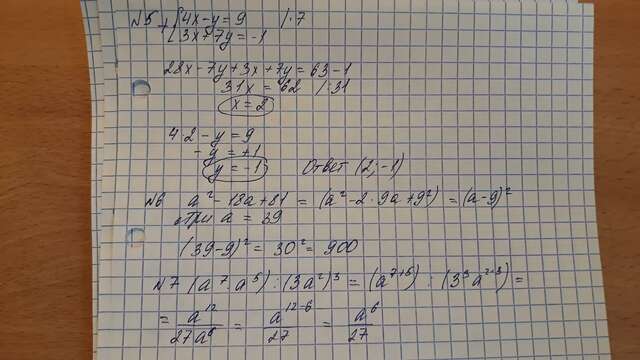 №5 + { 4x - y = 9 | ·7
3x + 7y = -1
28x - 7y + 3x + 7y = 63 - 1
31x = 62 | :31
x = 2
4·2 - y = 9
- y = +1
y = -1 Ответ (2; -1)
№6 a² - 18a + 81 = (a² - 2·9a + 9²) = (a - 9)²
При a = 39
(39 - 9)² = 30² = 900
№7 (a⁷·a⁵) : (3a²)³ = (a⁷⁺⁵) : (3³a²·³) =
= a¹²/27a⁶ = a¹²⁻⁶/27 = a⁶/27